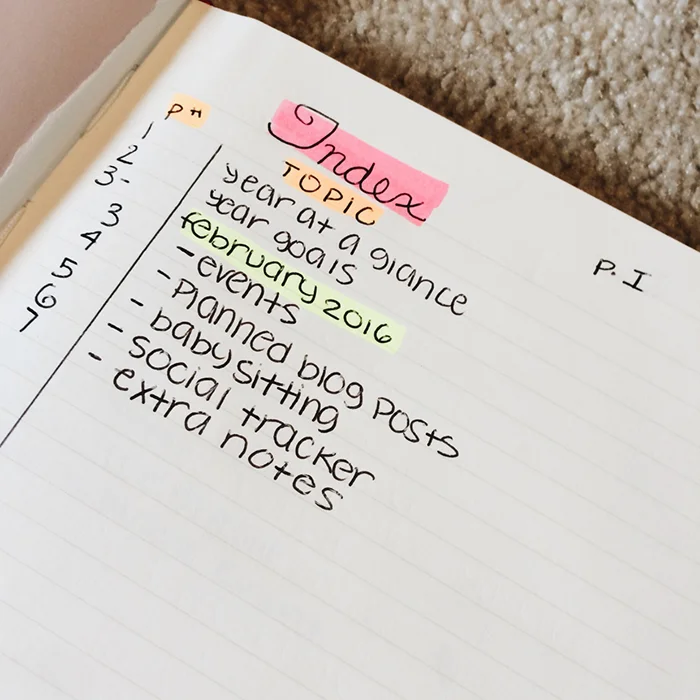 Index
P # TOPIC
P. I
1 year at a glance
2 year goals
3- february 2016
3 - events
4 - planned blog posts
5 - babysitting
6 - social tracker
7 - extra notes